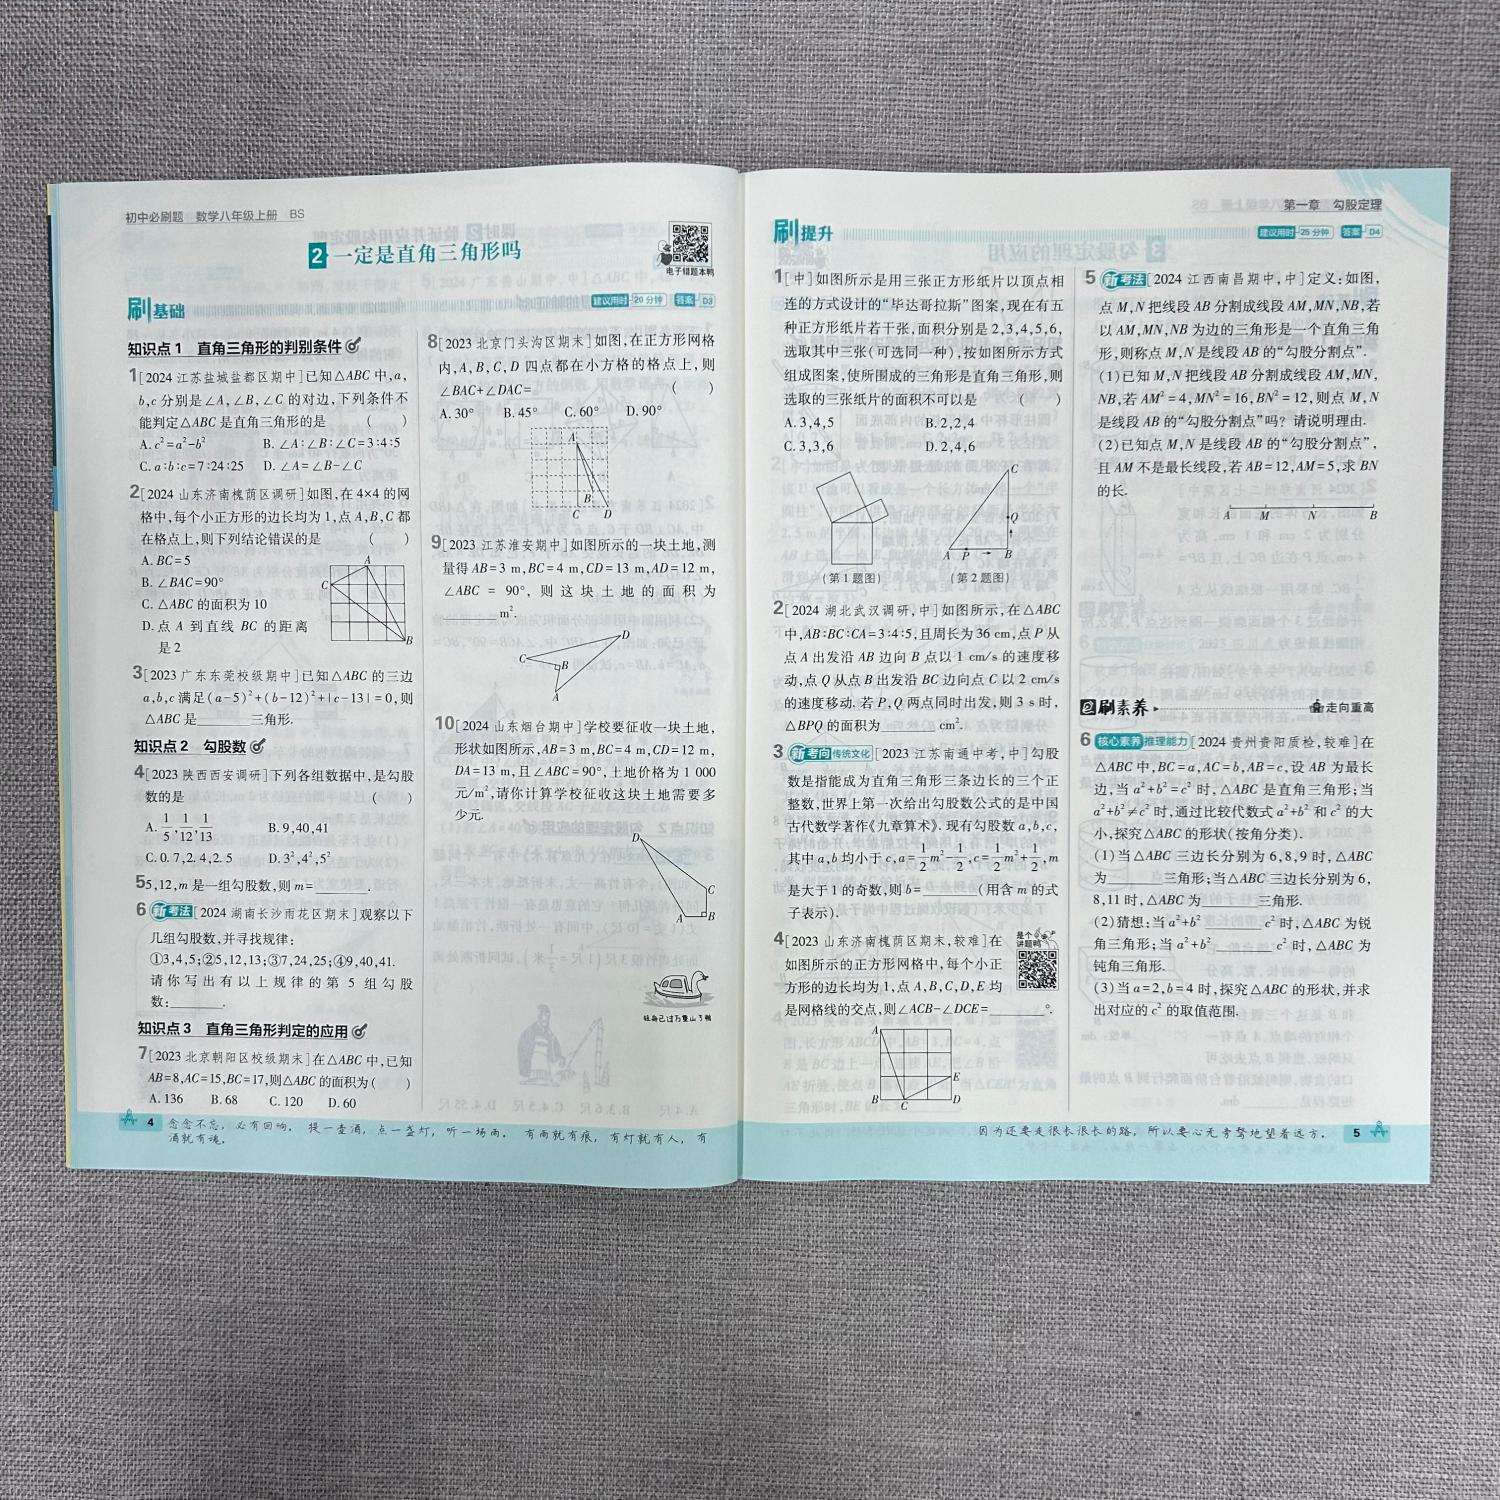 初中必刷题 数学八年级上册 BS
2 一定是直角三角形吗
电子错题本鸭
刷基础
建议用时 20分钟 答案 D3
知识点1 直角三角形的判别条件
1[2024江苏盐城盐都区期中]已知△ABC中,a,
b,c分别是∠A,∠B,∠C的对边,下列条件不
能判定△ABC是直角三角形的是 ( )
A. c²=a²-b² B. ∠A∶∠B∶∠C=3∶4∶5
C. a∶b∶c=7∶24∶25 D. ∠A=∠B-∠C
2[2024山东济南槐荫区调研]如图,在4×4的网
格中,每个小正方形的边长均为1,点A,B,C都
在格点上,则下列结论错误的是 ( )
A. BC=5
B. ∠BAC=90°
C. △ABC的面积为10
D. 点A到直线BC的距离
是2
A
C
B
3[2023广东东莞校级期中]已知△ABC的三边
a,b,c满足(a-5)²+(b-12)²+|c-13|=0,则
△ABC是______三角形.
知识点2 勾股数
4[2023陕西西安调研]下列各组数据中,是勾股
数的是 ( )
A. 1/5,1/12,1/13 B. 9,40,41
C. 0.7,2.4,2.5 D. 3²,4²,5²
5 5,12,m是一组勾股数,则m=______.
6 新考法[2024湖南长沙雨花区期末]观察以下
几组勾股数,并寻找规律:
①3,4,5;②5,12,13;③7,24,25;④9,40,41.
请你写出有以上规律的第5组勾股
数:______.
知识点3 直角三角形判定的应用
7[2023北京朝阳区校级期末]在△ABC中,已知
AB=8,AC=15,BC=17,则△ABC的面积为( )
A. 136 B. 68 C. 120 D. 60
8[2023北京门头沟区期末]如图,在正方形网格
内,A,B,C,D四点都在小方格的格点上,则
∠BAC+∠DAC= ( )
A. 30° B. 45° C. 60° D. 90°
A
B
C D
9[2023江苏淮安期中]如图所示的一块土地,测
量得AB=3 m,BC=4 m,CD=13 m,AD=12 m,
∠ABC = 90°, 则这块土地的面积为
______m².
D
C
B
A
10[2024山东烟台期中]学校要征收一块土地,
形状如图所示,AB=3 m,BC=4 m,CD=12 m,
DA=13 m,且∠ABC=90°,土地价格为1 000
元/m²,请你计算学校征收这块土地需要多
少元.
D
C
A B
轻舟已过万重山了鸭
4 念念不忘,必有回响。提一壶酒,点一盏灯,听一场雨。有雨就有痕,有灯就有人,有
酒就有魂。
第一章 勾股定理
刷提升
建议用时 25分钟 答案 D4
1[中]如图所示是用三张正方形纸片以顶点相
连的方式设计的“毕达哥拉斯”图案,现在有五
种正方形纸片若干张,面积分别是2,3,4,5,6,
选取其中三张(可选同一种),按如图所示方式
组成图案,使所围成的三角形是直角三角形,则
选取的三张纸片的面积不可以是 ( )
A. 3,4,5 B. 2,2,4
C. 3,3,6 D. 2,4,6
C
Q
A P B
(第1题图) (第2题图)
2[2024湖北武汉调研,中]如图所示,在△ABC
中,AB∶BC∶CA=3∶4∶5,且周长为36 cm,点P从
点A出发沿AB边向B点以1 cm/s的速度移
动,点Q从点B出发沿BC边向点C以2 cm/s
的速度移动.若P,Q两点同时出发,则3 s时,
△BPQ的面积为______cm².
3 新考向 传统文化[2023江苏南通中考,中]勾股
数是指能成为直角三角形三条边长的三个正
整数,世界上第一次给出勾股数公式的是中国
古代数学著作《九章算术》.现有勾股数a,b,c,
其中a,b均小于c,a=1/2m²-1/2,c=1/2m²+1/2,m
是大于1的奇数,则b=______(用含m的式
子表示).
4[2023山东济南槐荫区期末,较难]在
如图所示的正方形网格中,每个小正
方形的边长均为1,点A,B,C,D,E均
是网格线的交点,则∠ACB-∠DCE=______°.
是个讲题鸭
A
E
B C D
5 新考法[2024江西南昌期中,中]定义:如图,
点M,N把线段AB分割成线段AM,MN,NB,若
以AM,MN,NB为边的三角形是一个直角三角
形,则称点M,N是线段AB的“勾股分割点”.
(1)已知M,N把线段AB分割成线段AM,MN,
NB,若AM²=4,MN²=16,BN²=12,则点M,N
是线段AB的“勾股分割点”吗?请说明理由.
(2)已知点M,N是线段AB的“勾股分割点”,
且AM不是最长线段,若AB=12,AM=5,求BN
的长.
A M N B
刷素养 走向重高
6 核心素养 推理能力[2024贵州贵阳质检,较难]在
△ABC中,BC=a,AC=b,AB=c,设AB为最长
边,当a²+b²=c²时,△ABC是直角三角形;当
a²+b²≠c²时,通过比较代数式a²+b²和c²的大
小,探究△ABC的形状(按角分类).
(1)当△ABC三边长分别为6,8,9时,△ABC
为______三角形;当△ABC三边长分别为6,
8,11时,△ABC为______三角形.
(2)猜想:当a²+b²______c²时,△ABC为锐
角三角形;当a²+b²______c²时,△ABC为
钝角三角形.
(3)当a=2,b=4时,探究△ABC的形状,并求
出对应的c²的取值范围.
因为还要走很长很长的路,所以要心无旁骛地望着远方。 5